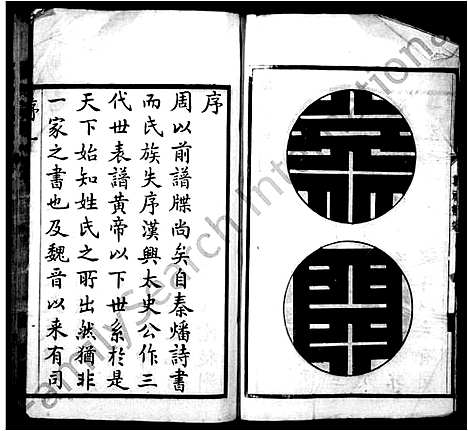 序
周以前譜牒尚矣自秦燔詩書
而氏族失序漢興太史公作三
代世表譜黃帝以下世系於是
天下始知姓氏之所出然猶非
一家之書也及魏晉以来有司
序 一
FamilySearch International